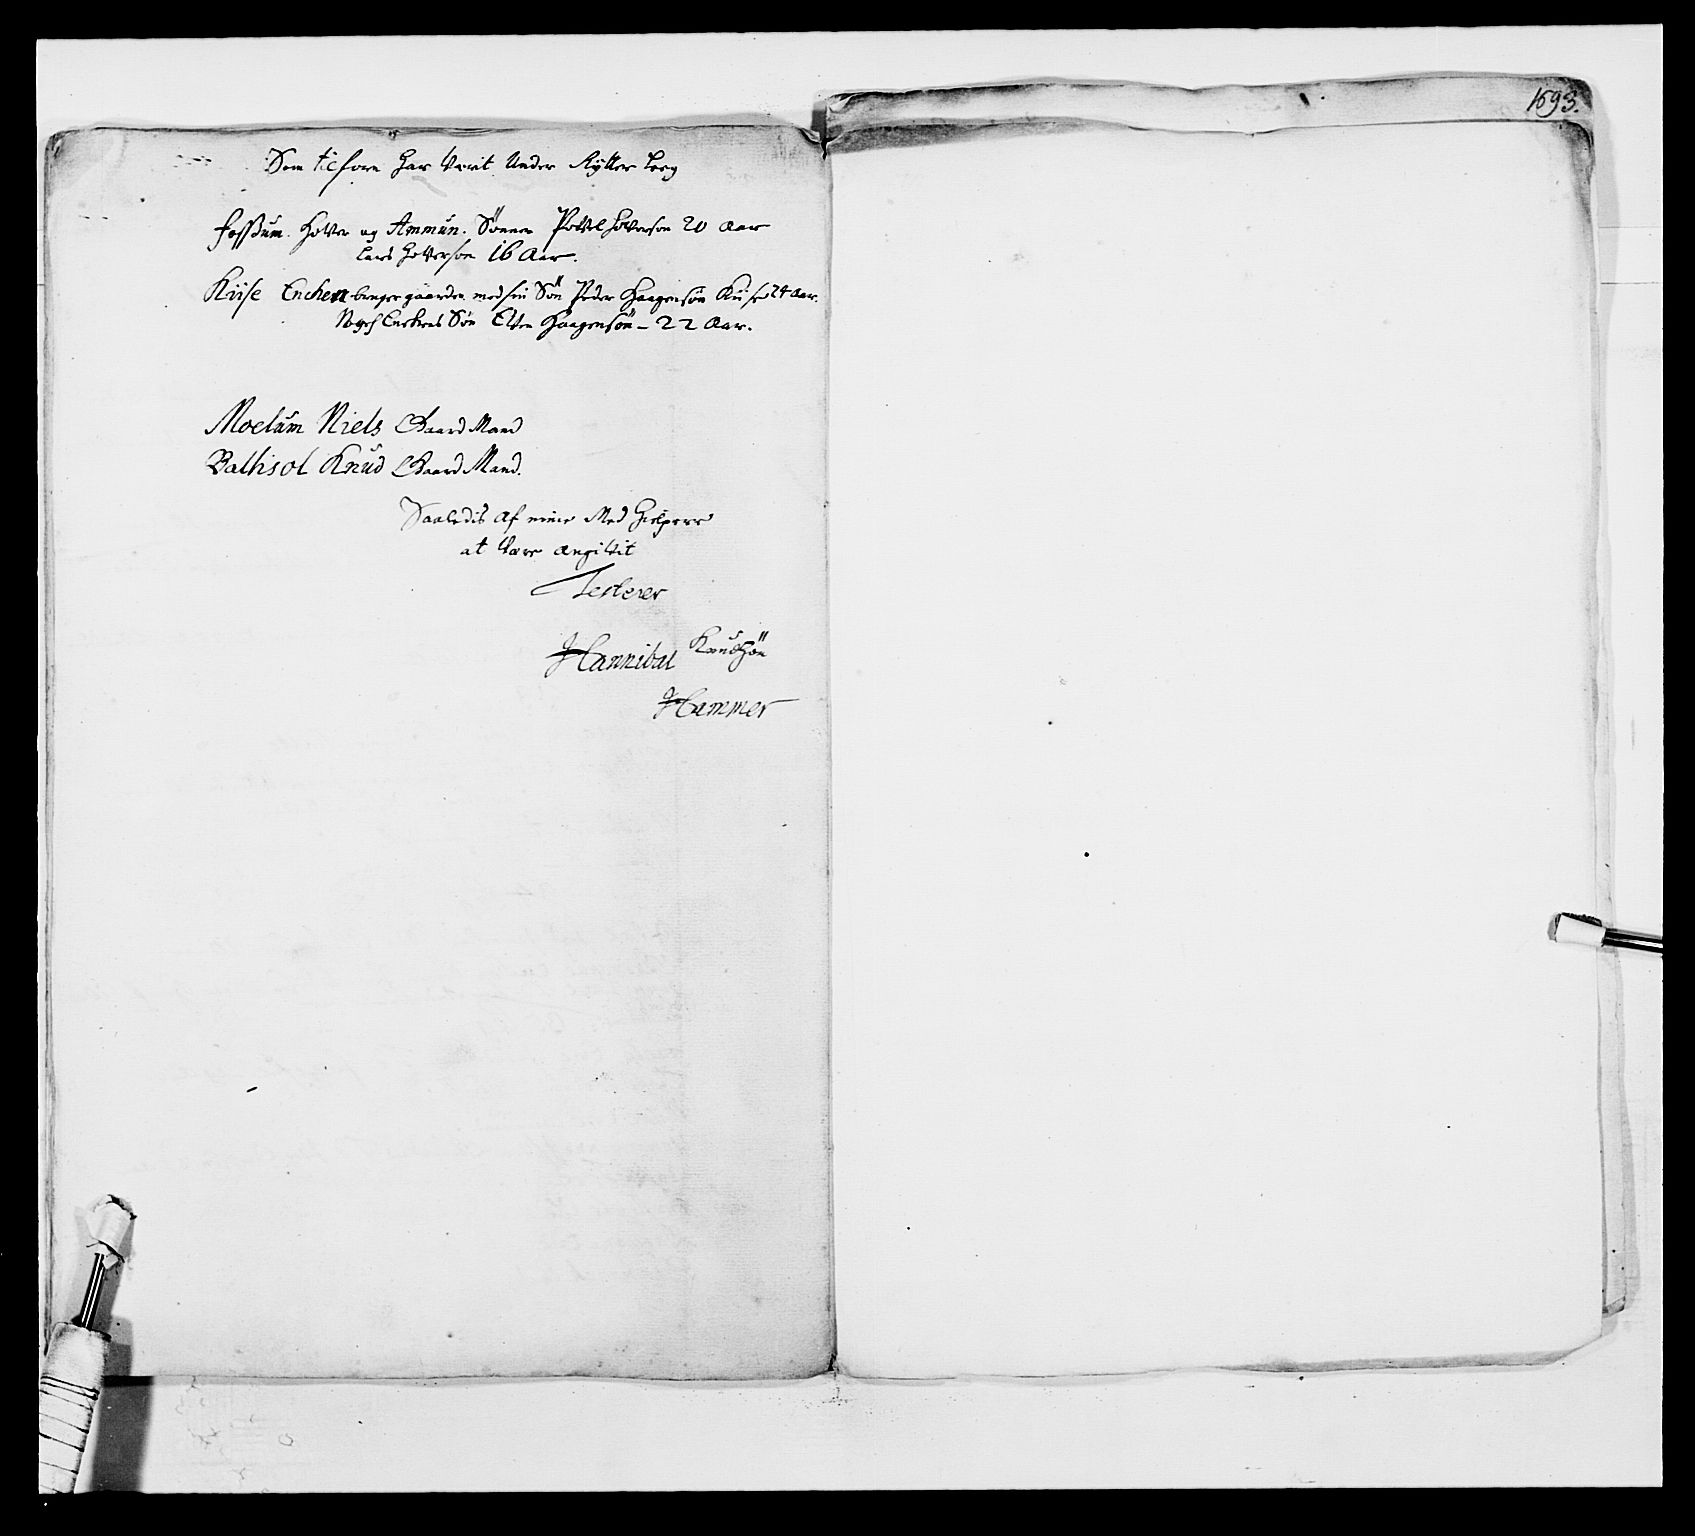 Som tilforn har Verit Under Rÿtter Leeg
fossum. Holver og Ammun. Sönner Povel Holversøn 20 Aar
Lars Holversøn 16 Aar.
Kiise Enchen bruger gaarden med sin Søn Peder Haagensøn Kiise 24 Aar.
Noch Enchens Søn Elven Haagensøn - 22 Aar.
Moelum Niels Gaard Mand
Bathisol Knud Gaard Mand.
Saaledis af mine Med hielpere
at Være angivit
Testerer
Hannibal Knudsøn
Hammer
1693.